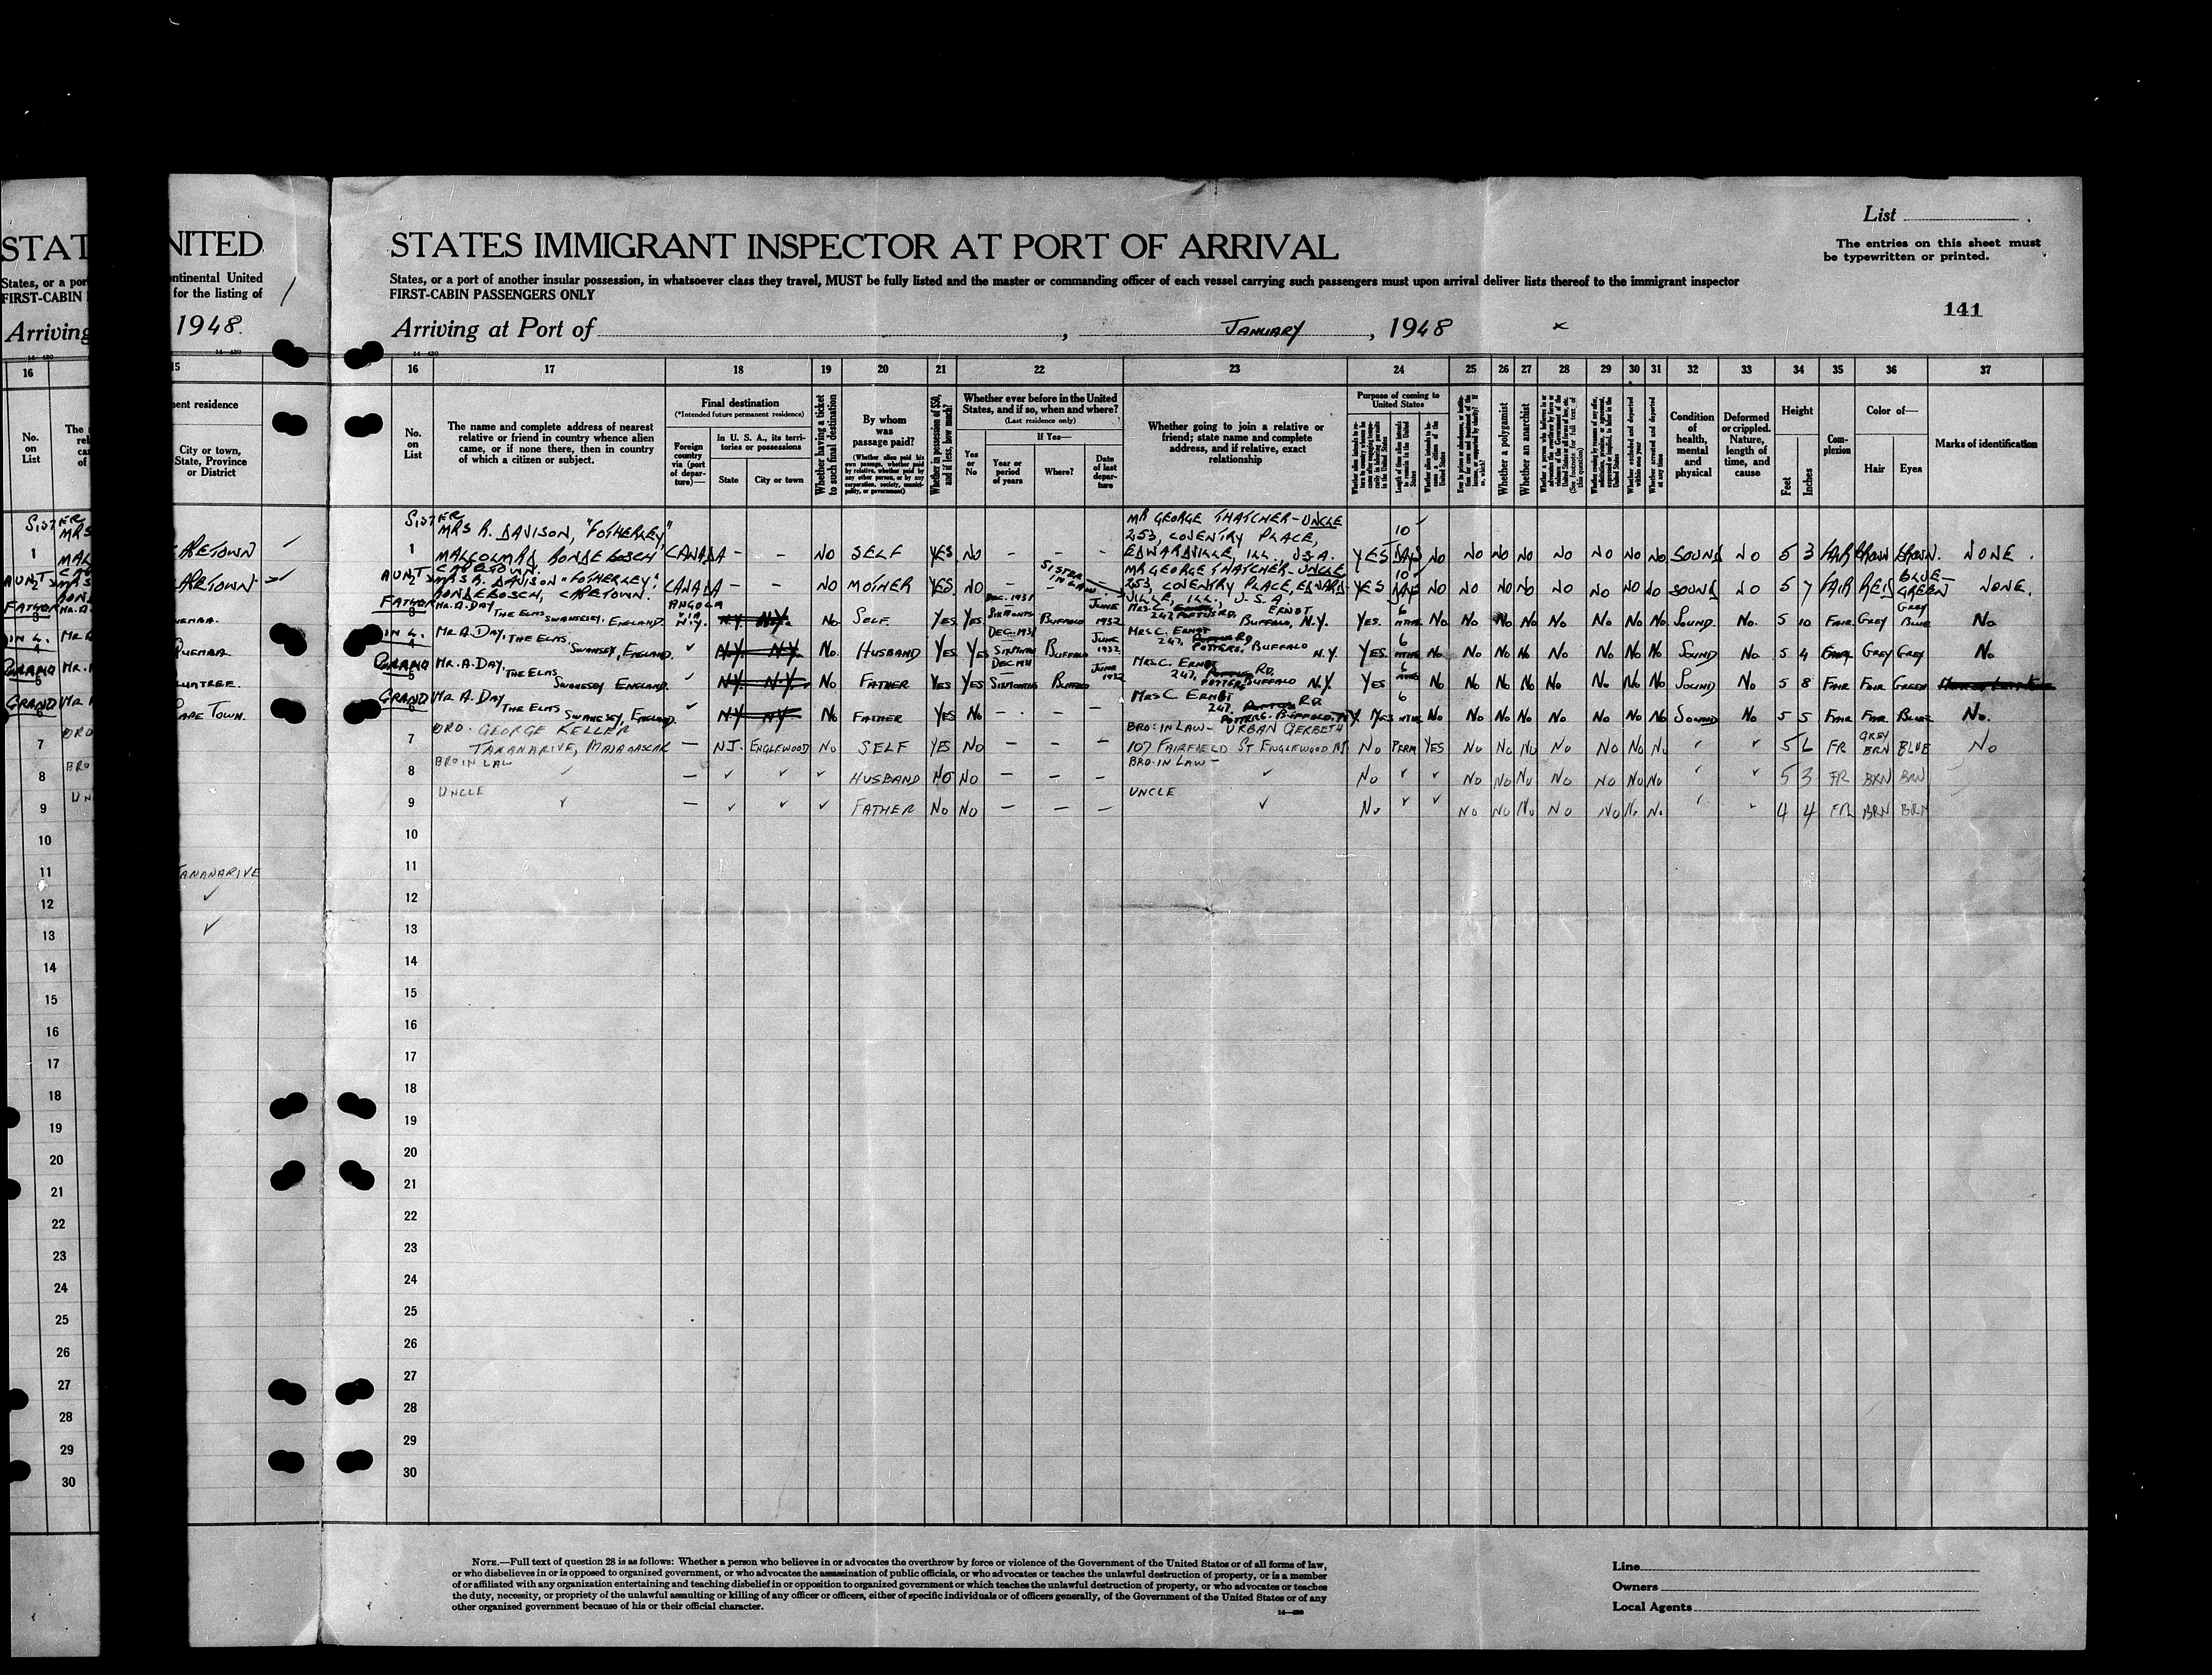 STAT
States, or a por
FIRST-CABIN
Arriving
NITED
ontinental United
for the listing of
1948.
List
The entries on this sheet must
be typewritten or printed.
STATES IMMIGRANT INSPECTOR AT PORT OF ARRIVAL
States, or a port of another insular possession, in whatsoever class they travel, MUST be fully listed and the master or commanding officer of each vessel carrying such passengers must upon arrival deliver lists thereof to the immigrant inspector
FIRST-CABIN PASSENGERS ONLY
141
Arriving at Port of , JANUARY , 1948
16 17 18 19 20 21 22 23 24 25 26 27 28 29 30 31 32 33 34 35 36 37
No. on List
The name and complete address of nearest relative or friend in country whence alien came, or if none there, then in country of which a citizen or subject.
Final destination
(*Intended future permanent residence)
Foreign country via (port of departure)—
In U. S. A., its territories or possessions
State
City or town
Whether having a ticket to such final destination
By whom was passage paid?
(Whether alien paid his own passage, whether paid by relative, whether paid by any other person, or by any corporation, society, municipality, or government)
Whether in possession of $50, and if less, how much?
Whether ever before in the United States, and if so, when and where?
(Last residence only)
Yes or No
If Yes—
Year or period of years
Where?
Date of last departure
Whether going to join a relative or friend; state name and complete address, and if relative, exact relationship
Purpose of coming to United States
Whether a polygamist
Whether an anarchist
Whether excluded and deported within one year
Whether arrested and deported at any time
Condition of health, mental and physical
Deformed or crippled. Nature, length of time, and cause
Height
Feet
Inches
Complexion
Color of—
Hair
Eyes
Marks of identification
ent residence
City or town, State, Province or District
SISTER
1 MRS R. DAVISON, "FOTHERLEY" MALCOLM RD RONDEBOSCH CAPETOWN. CANADA - - NO SELF YES NO - - - MR GEORGE THATCHER - UNCLE 253, COVENTRY PLACE, EDWARDVILLE, ILL. U.S.A. YES 10 DAYS NO NO NO NO NO NO NO NO SOUND NO 5 3 FAIR BROWN BROWN. NONE.
AUNT
2 MRS R. DAVISON "FOTHERLEY" RONDEBOSCH, CAPETOWN. CANADA - - NO MOTHER YES NO - - - MR GEORGE THATCHER - UNCLE 253, COVENTRY PLACE, EDWARDVILLE, ILL., U.S.A YES 10 DAYS NO NO NO NO NO NO NO NO SOUND NO 5 7 FAIR RED BLUE-GREEN NONE.
FATHER
3 MR. A. DAY THE ELMS SWANSEY. ENGLAND. ANGOLA VIA N.Y. N.Y. N.Y. NO SELF. YES YES DEC. 1931 SIX MONTHS BUFFALO JUNE 1932 SISTER IN LAW MRS. C. ERNST 247, POTTERS RD, BUFFALO, N.Y. YES. 6 MTHS NO NO NO NO NO NO NO NO SOUND. NO. 5 10 FAIR GREY GREY BLUE NO
IN L.
4 MR A. DAY, THE ELMS SWANSEY, ENGLAND. ✓ N.Y. N.Y. NO. HUSBAND YES YES DEC. 1931 SIX MONTHS BUFFALO JUNE 1932 MRS C. ERNST 247, POTTERS, RD BUFFALO N.Y. YES. 6 MTHS NO NO NO NO NO NO NO NO SOUND NO 5 4 FAIR GREY GREY NO
GRAND
5 MR. A. DAY, THE ELMS SWANSEY ENGLAND. ✓ N.Y. N.Y. NO FATHER YES YES DEC 1931 SIX MONTHS BUFFALO JUNE 1932 MRS C. ERNST 247, POTTERS RD. BUFFALO N.Y. YES 6 MTHS NO NO NO NO NO NO NO NO SOUND NO 5 8 FAIR FAIR GREEN
GRAND
6 MR A. DAY THE ELMS SWANSEY, ENGLAND. ✓ N.Y. N.Y. NO FATHER YES NO - - - MRS C ERNST 247. POTTERS RD. BUFFALO. N.Y. YES 6 MTHS NO NO NO NO NO NO NO NO SOUND NO 5 5 FAIR FAIR BLUE NO.
7 BRO. GEORGE KELLER TANANARIVE, MADAGASCAR — NJ. ENGLEWOOD NO SELF YES NO — — — BRO: IN LAW - URBAN GERBETH 107 FAIRFIELD ST ENGLEWOOD NJ NO PERM YES NO NO NO NO NO NO NO ✓ ✓ 5 6 FR GREY BRN BLUE NO
8 BRO IN LAW ✓ — ✓ ✓ ✓ HUSBAND NO NO — — — BRO. IN LAW - ✓ NO ✓ ✓ NO NO NO NO NO NO NO ✓ ✓ 5 3 FR BRN BRN
9 UNCLE ✓ — ✓ ✓ ✓ FATHER NO NO — — — UNCLE ✓ NO ✓ ✓ NO NO NO NO NO NO NO ✓ ✓ 4 4 FR BRN BRN
10
11 TANANARIVE
12 ✓
13 ✓
14
15
16
17
18
19
20
21
22
23
24
25
26
27
28
29
30
NOTE.—Full text of question 28 is as follows: Whether a person who believes in or advocates the overthrow by force or violence of the Government of the United States or of all forms of law,
or who disbelieves in or is opposed to organized government, or who advocates the assassination of public officials, or who advocates or teaches the unlawful destruction of property, or is a member
of or affiliated with any organization entertaining and teaching disbelief in or opposition to organized government or which teaches the unlawful destruction of property, or who advocates or teaches
the duty, necessity, or propriety of the unlawful assaulting or killing of any officer or officers, either of specific individuals or of officers generally, of the Government of the United States or of any
other organized government because of his or their official character.
Line
Owners
Local Agents